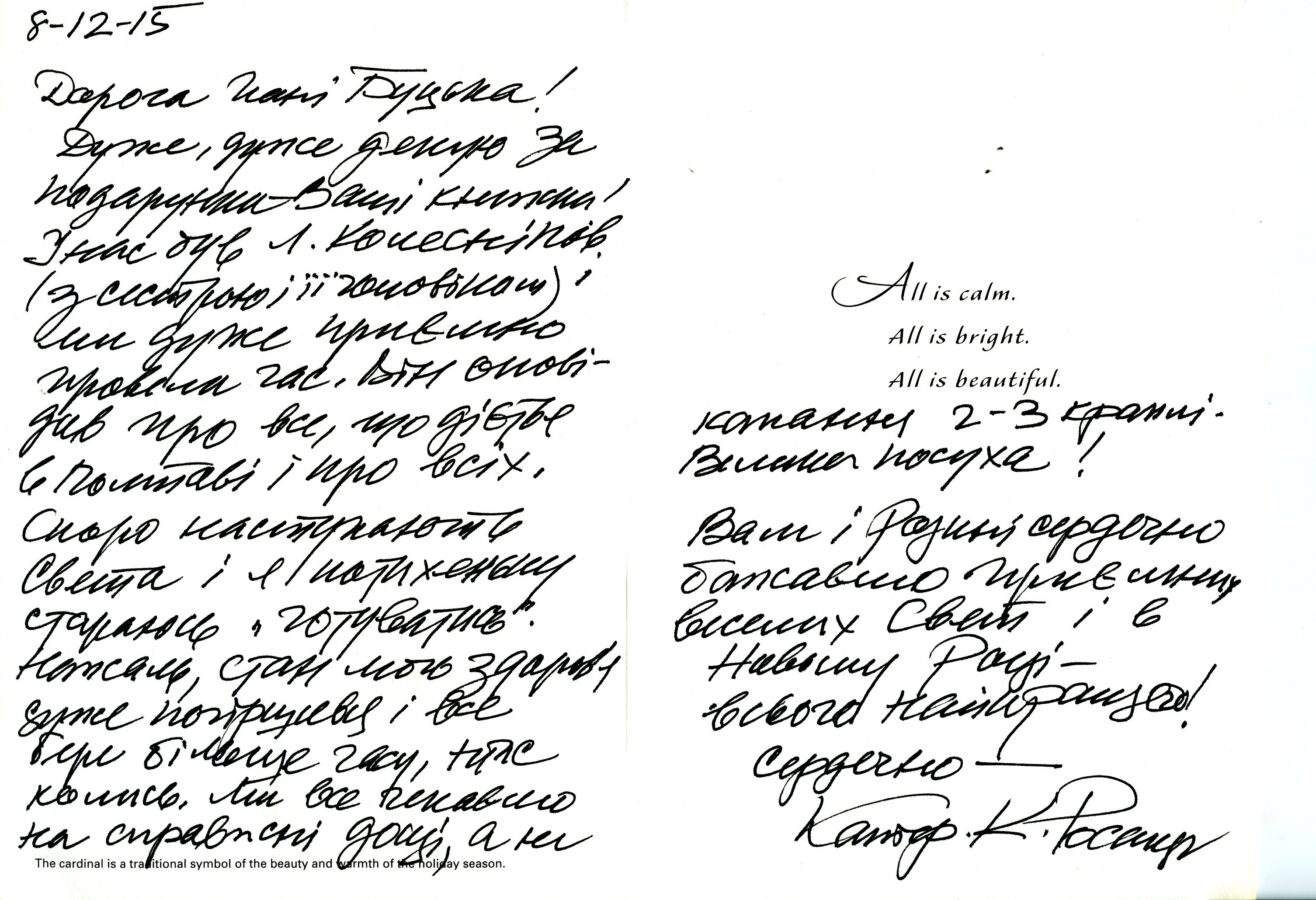 8-12-15
Дорога Пані Буцька!
Дуже, дуже дякую за
подарунки – Ваші книжки!
У нас був Л. Колесніков
(з сестрою і її чоловіком) і
ми дуже приємно
провели час. Він опові-
дав про все, що діється
в Полтаві і про всіх.
Скоро наступають
Свята і я потихеньку
стараюсь „готуватись".
Нажаль, стан мого здоров'я
дуже погіршився і все
бере більше часу, ніж
колись. Ми все чекаємо
на справжні дощі, а не
The cardinal is a traditional symbol of the beauty and warmth of the holiday season.
All is calm.
All is bright.
All is beautiful.
капання 2-3 краплі.
Велика посуха!
Вам і Родині сердечно
бажаємо приємних
веселих Свят і в
Новому Році –
всього найкращого!
Сердечно —
К.